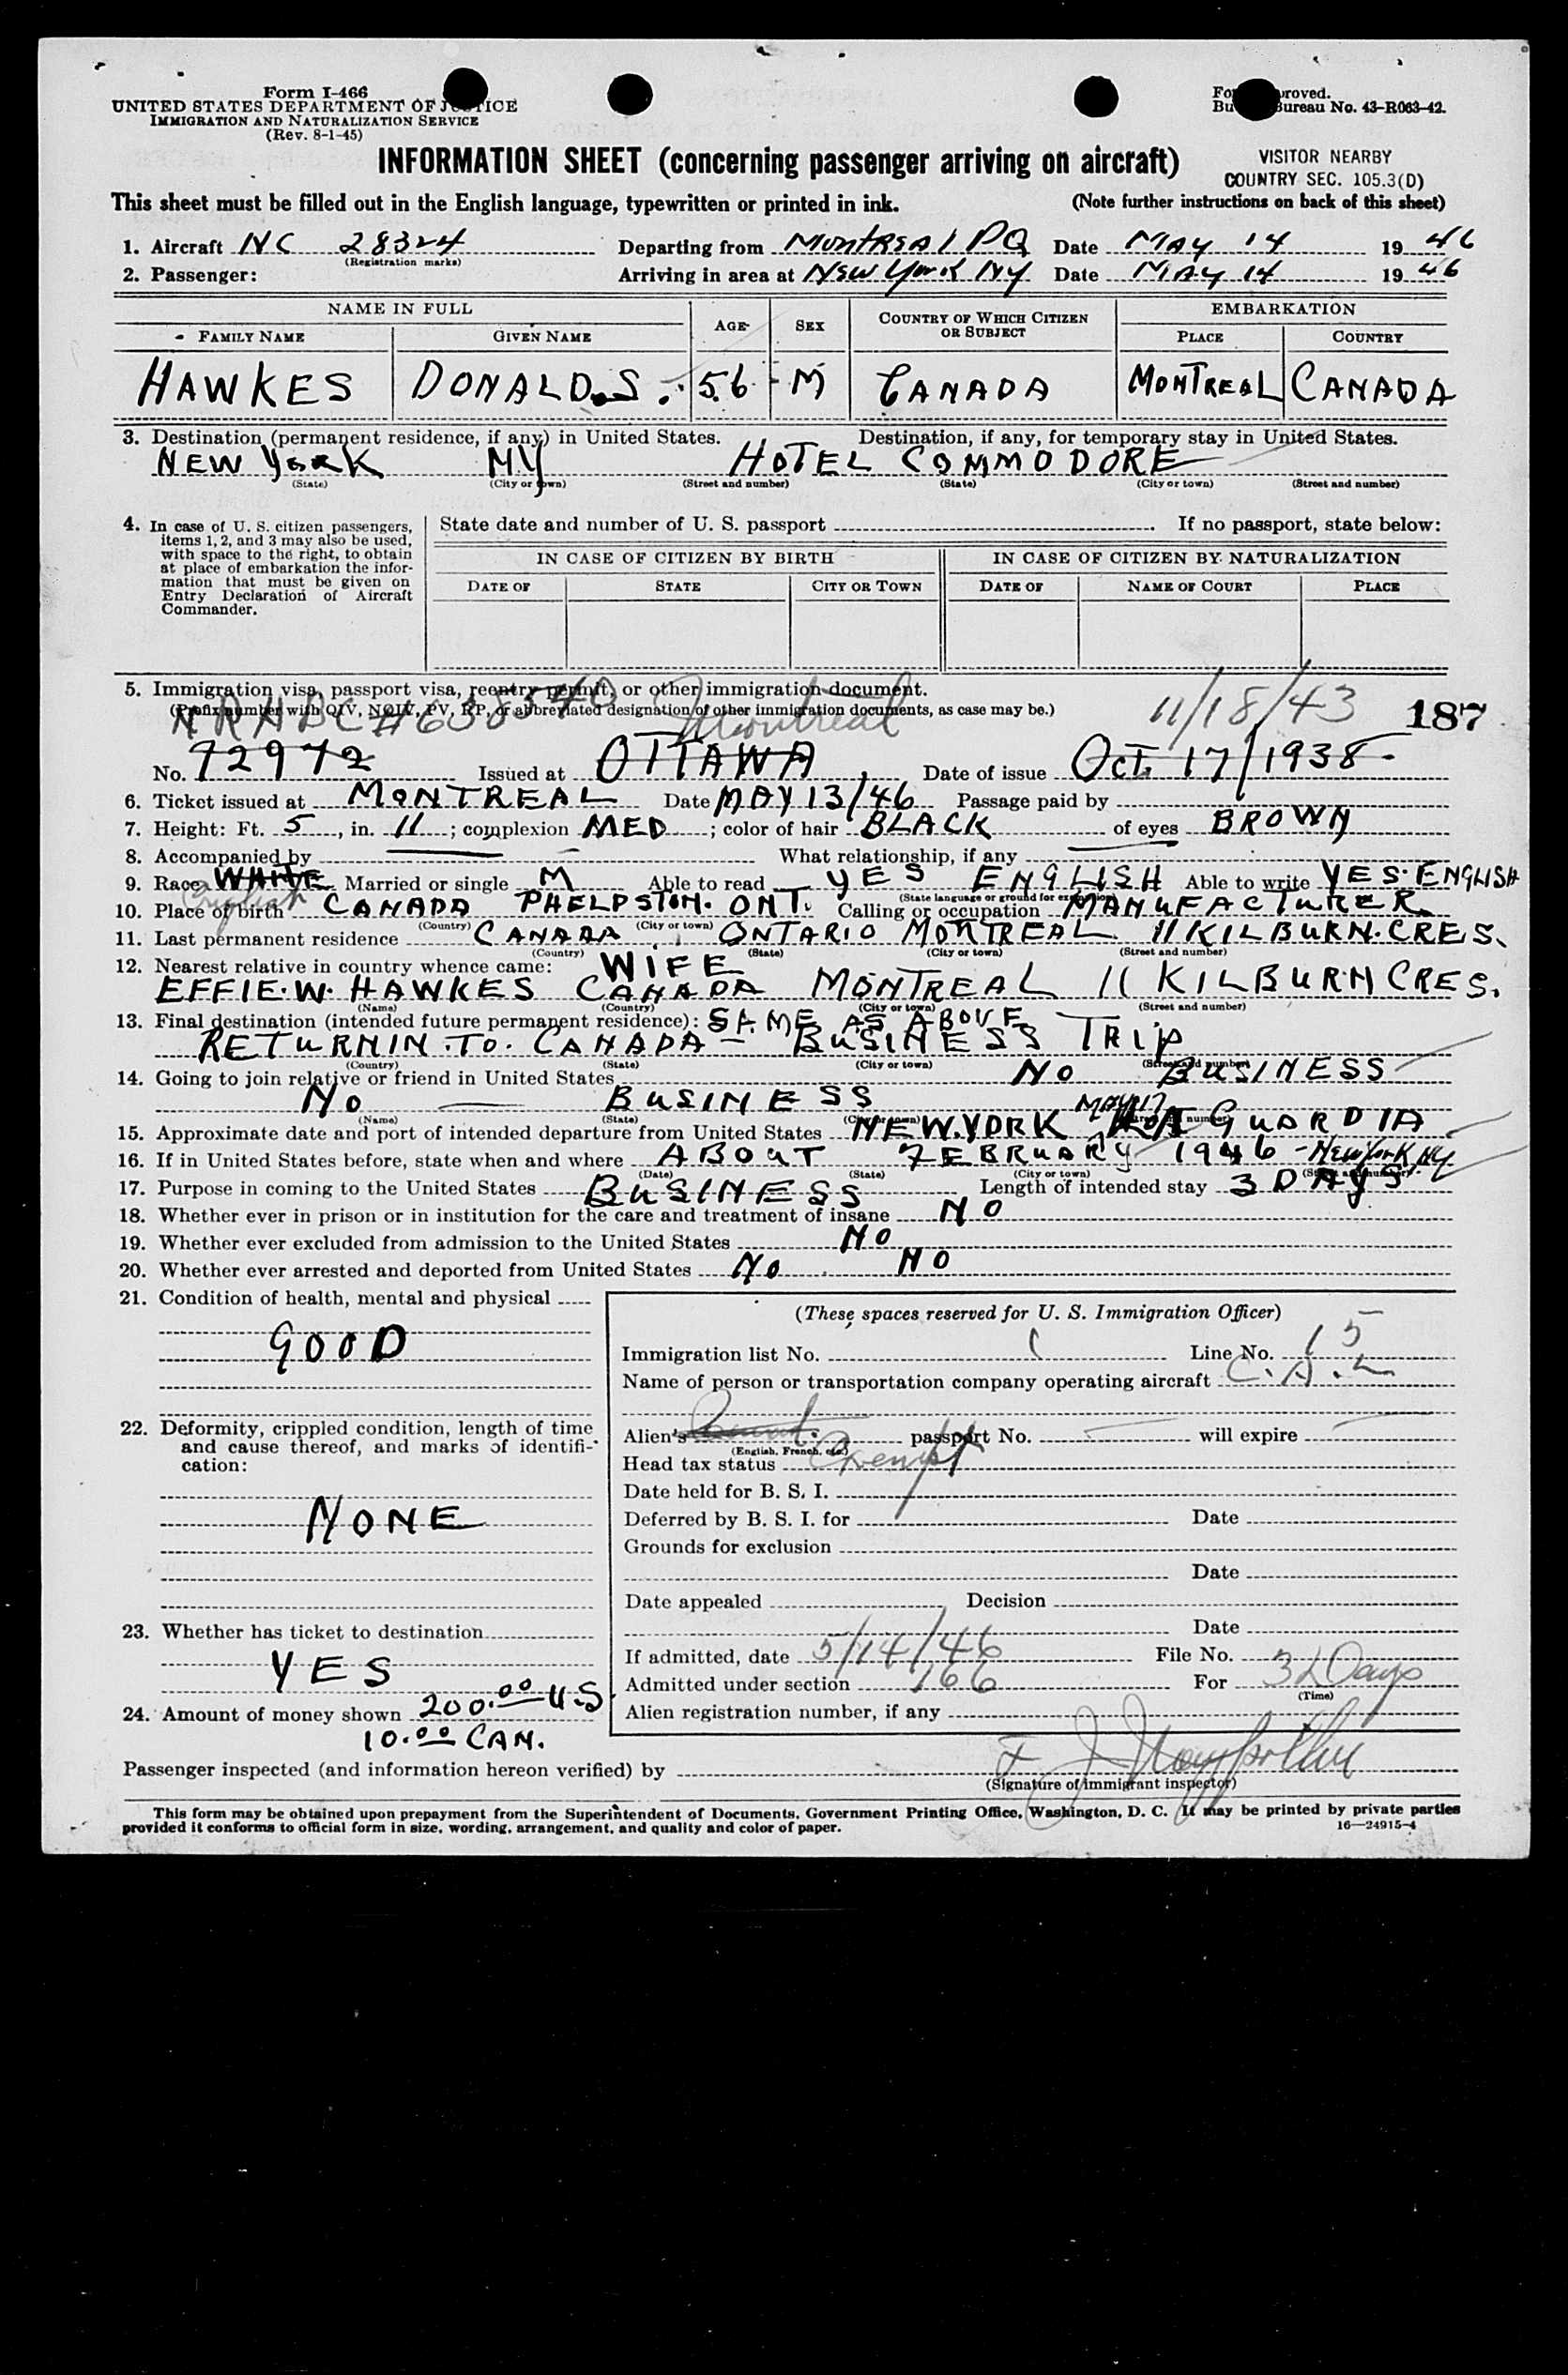 Form I-466
UNITED STATES DEPARTMENT OF JUSTICE
IMMIGRATION AND NATURALIZATION SERVICE
(Rev. 8-1-45)
Bureau No. 43-R063-42.
INFORMATION SHEET (concerning passenger arriving on aircraft)
VISITOR NEARBY
COUNTRY SEC. 105.3(D)
This sheet must be filled out in the English language, typewritten or printed in ink. (Note further instructions on back of this sheet)
1. Aircraft NC 28324 Departing from MONTREAL PQ Date MAY 14 1946
(Registration marks)
2. Passenger: Arriving in area at NEW YORK NY Date MAY 14 1946
NAME IN FULL AGE SEX COUNTRY OF WHICH CITIZEN OR SUBJECT EMBARKATION
FAMILY NAME GIVEN NAME PLACE COUNTRY
HAWKES DONALD.S. 56 M CANADA MONTREAL CANADA
3. Destination (permanent residence, if any) in United States. Destination, if any, for temporary stay in United States.
NEW YORK NY HOTEL COMMODORE
(State) (City or town) (Street and number) (State) (City or town) (Street and number)
4. In case of U. S. citizen passengers, items 1, 2, and 3 may also be used, with space to the right, to obtain at place of embarkation the information that must be given on Entry Declaration of Aircraft Commander.
State date and number of U. S. passport If no passport, state below:
IN CASE OF CITIZEN BY BIRTH IN CASE OF CITIZEN BY NATURALIZATION
DATE OF STATE CITY OR TOWN DATE OF NAME OF COURT PLACE
5. Immigration visa, passport visa, reentry permit, or other immigration document.
(Prefix number with QIV, NQIV, PV, RP, or abbreviated designation of other immigration documents, as case may be.)
NRHBC #638540 Montreal 11/18/43 187
No. 72972 Issued at OTTAWA Date of issue OCT. 17/1938
6. Ticket issued at MONTREAL Date MAY 13/46 Passage paid by
7. Height: Ft. 5, in. 11; complexion MED; color of hair BLACK of eyes BROWN
8. Accompanied by What relationship, if any
9. Race WHITE English Married or single M Able to read YES ENGLISH Able to write YES. ENGLISH
(State language or ground for exemption)
10. Place of birth CANADA PHELPSTON. ONT. Calling or occupation MANUFACTURER
(Country) (City or town)
11. Last permanent residence CANADA ONTARIO MONTREAL 11 KILBURN. CRES.
(Country) (State) (City or town) (Street and number)
12. Nearest relative in country whence came: WIFE
EFFIE.W. HAWKES CANADA MONTREAL 11 KILBURN CRES.
(Name) (Country) (City or town) (Street and number)
13. Final destination (intended future permanent residence): SAME AS ABOVE
RETURNIN.TO. CANADA - BUSINESS TRIP
(Country) (State) (City or town) (Street and number)
14. Going to join relative or friend in United States NO BUSINESS
NO BUSINESS
(Name) (State) (City or town) (Street and number)
15. Approximate date and port of intended departure from United States NEW.YORK MAY 17 LA GUARDIA
16. If in United States before, state when and where ABOUT FEBRUARY 1946 - NEW YORK NY
(Date) (State) (City or town) (Street and number)
17. Purpose in coming to the United States BUSINESS Length of intended stay 3 DAYS.
18. Whether ever in prison or in institution for the care and treatment of insane NO
19. Whether ever excluded from admission to the United States NO
20. Whether ever arrested and deported from United States NO NO
21. Condition of health, mental and physical
GOOD
22. Deformity, crippled condition, length of time and cause thereof, and marks of identification:
NONE
23. Whether has ticket to destination
YES
24. Amount of money shown 200.00 U.S.
10.00 CAN.
(These spaces reserved for U. S. Immigration Officer)
Immigration list No. 1 Line No. 15
Name of person or transportation company operating aircraft C.A.L
Alien's passport No. will expire
(English, French, etc.)
Head tax status Exempt
Date held for B. S. I.
Deferred by B. S. I. for Date
Grounds for exclusion
Date
Date appealed Decision
Date
If admitted, date 5/14/46 File No.
Admitted under section 166 For Days
(Time)
Alien registration number, if any
Passenger inspected (and information hereon verified) by
(Signature of immigrant inspector)
This form may be obtained upon prepayment from the Superintendent of Documents, Government Printing Office, Washington, D. C. It may be printed by private parties
provided it conforms to official form in size, wording, arrangement, and quality and color of paper. 16—24915-4